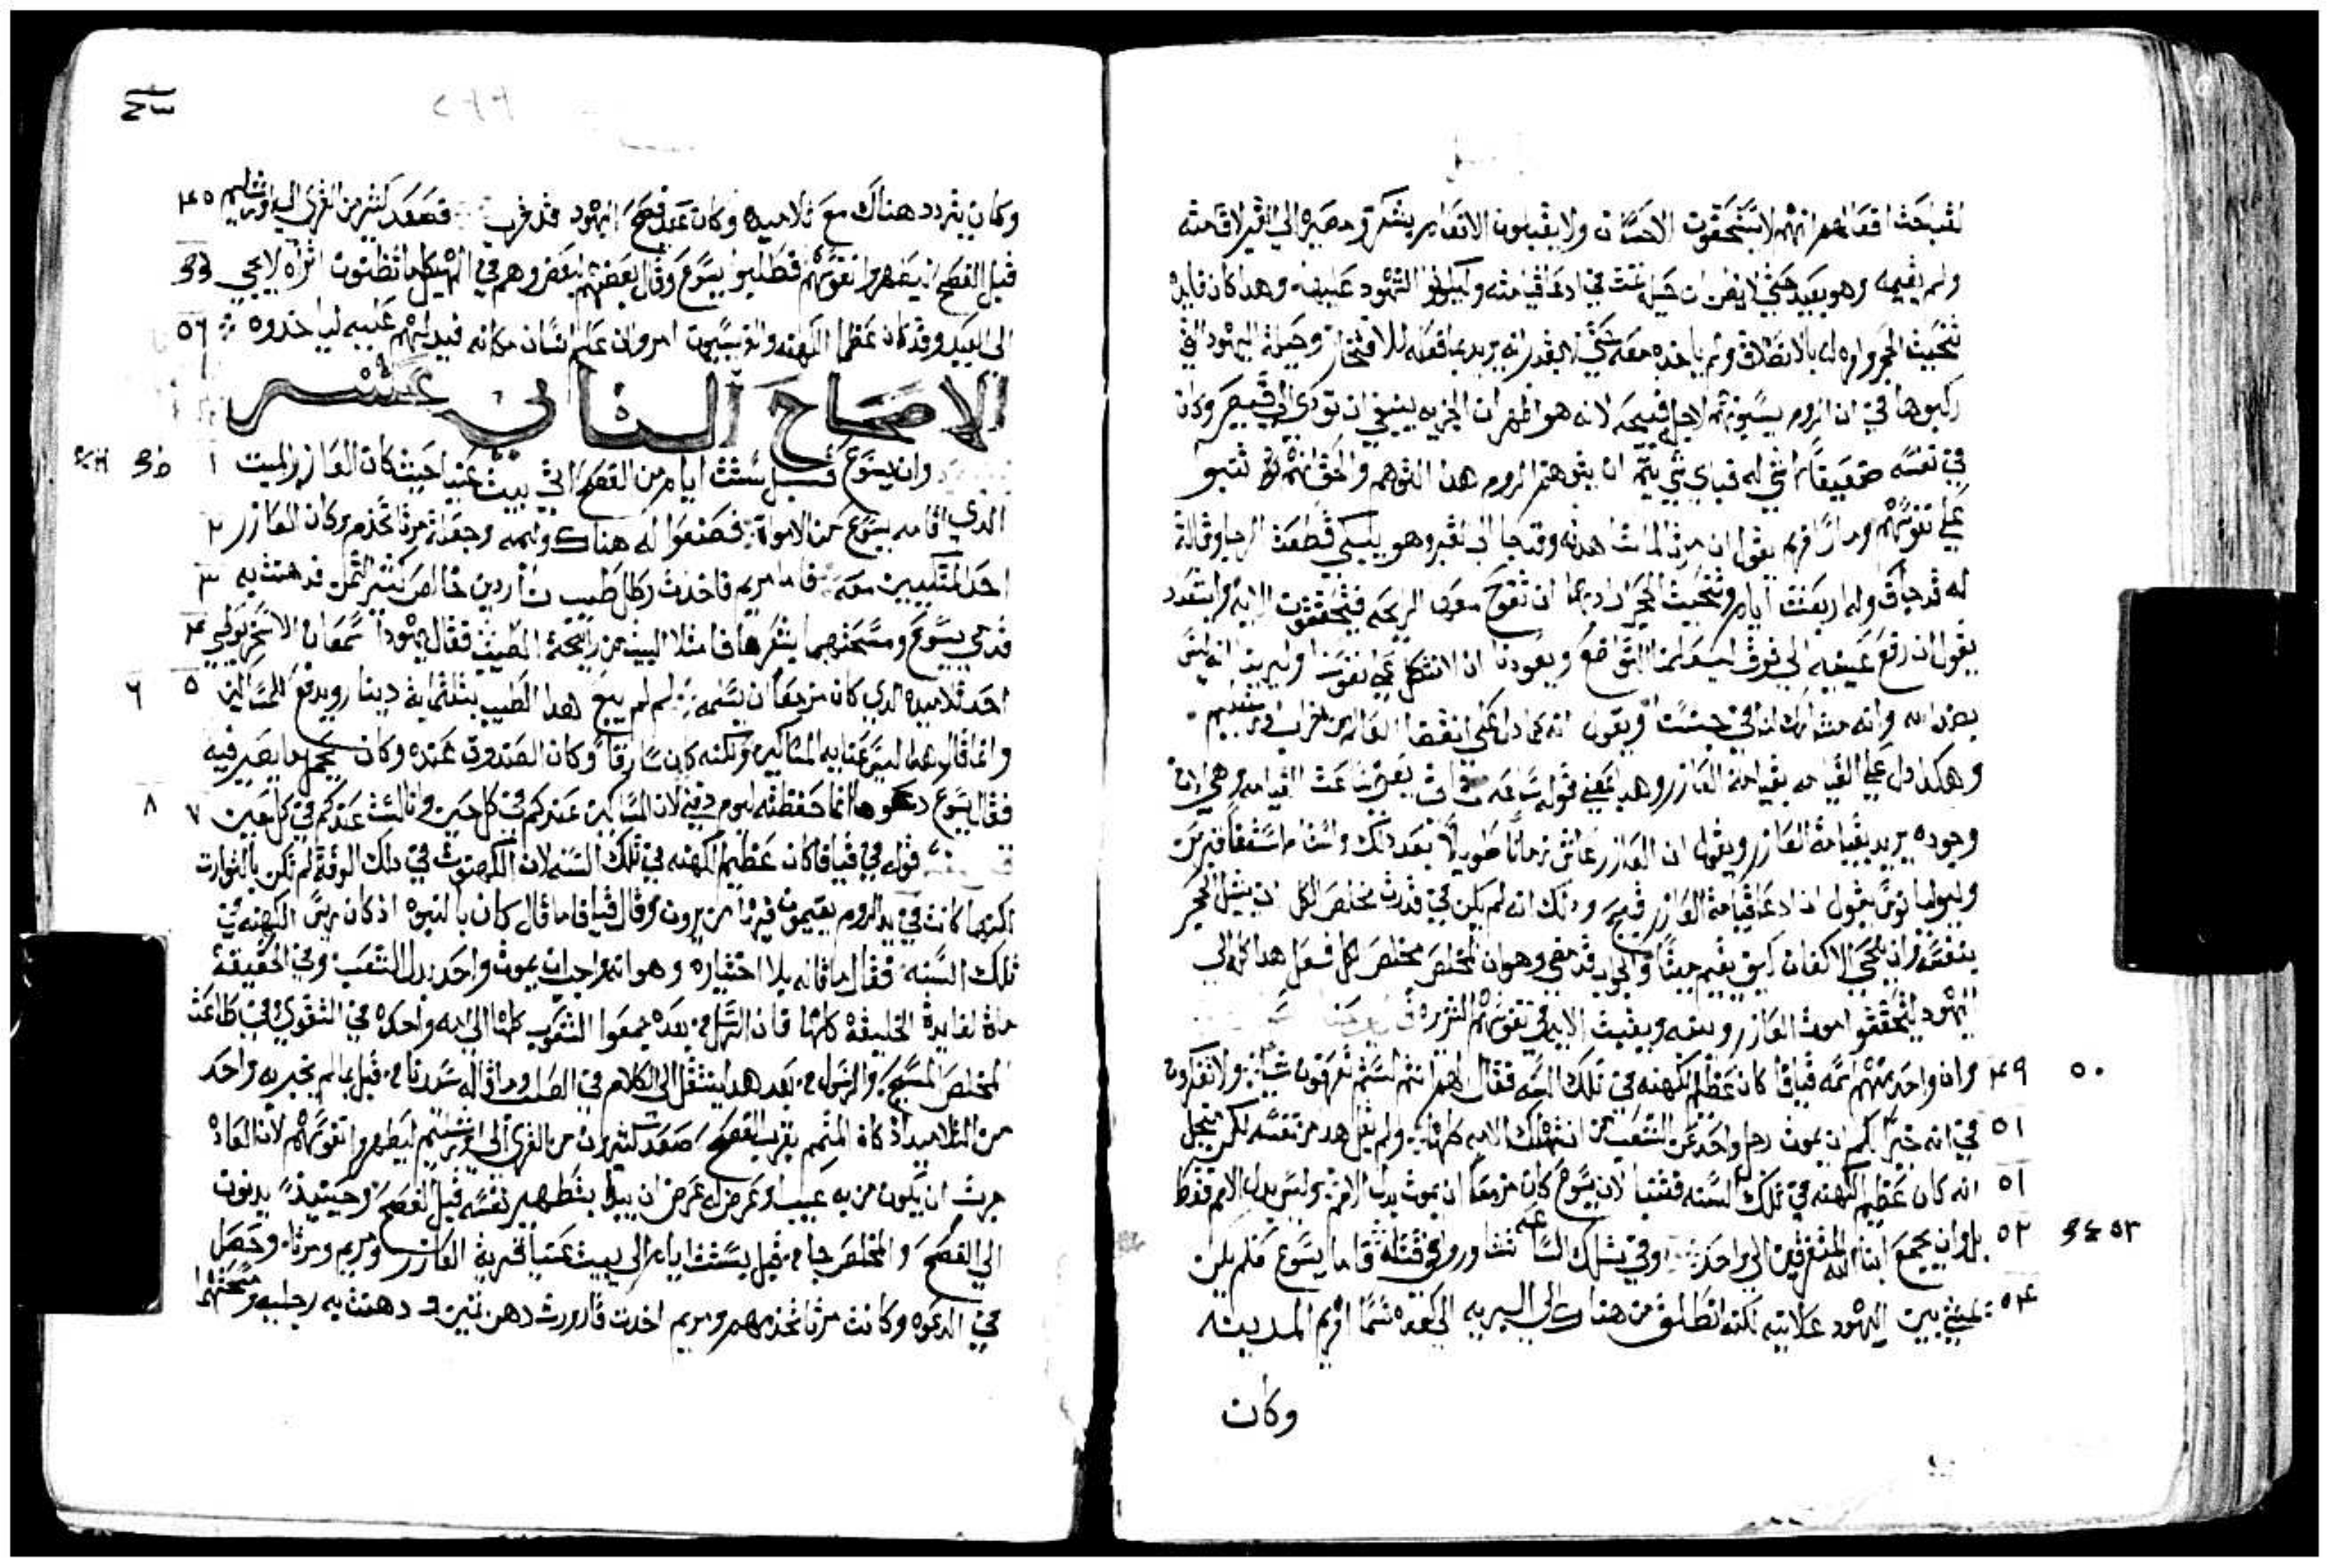 لقباحت افعالهم انهم لا يستحقون الاحسان ولا يقبلون الانعام يشكر ومصيره الى القبر لاقامته
ولم يقيمه وهو بعيد حتى لا يظن ان حيل تمت في ادعا قيامته وليكونوا الشهود عليه وهدا كان فايده
تنحيت الحجر وامره له بالانطلاق ولم ياخده معه حتى لا يقدر انه يريد بما فعله للافتخار وحيلة اليهود التي
ركبوها في ان الروم يسبونهم لاجل قبيحه لانه هو اظهر ان الجزيه ينبغي ان تودى الى قيصر وكان
في نفسه ضعيفاً لا شي له فباي شي يتم ان يتوهم الروم هدا التوهم والحق انهم
على نفوسهم ومار افريم يقول ان مرثا لما شاهدته وقد جا الى القبر وهو يبكي قطعت الرجا وقالت
له قد جاف وله اربعت ايام وتنحيت الحجر اراد بها ان تفوح معهم الريحه فتحققت
يقول ان رفع عينيه الى فوق ليعلمنا التواضع ويعودنا ان لا نتكل على نفوسنا وليرينا انه ليس
بضد لله وانه مشارك لنا في جنسنا ويقول انه كما دل على انقضا العالم من خراب اورشليم
وهكدا دل على القيامه بقيامة العازر وهدا معنى قوله ساعه تاتي يعني ساعت القيامه وهي الان
وجوده يريد بقيامة العازر ويقول ان العازر عاش زماناً طويلاً بعد دلك واستناس اسقفاً قبرس
وليوليانوس يقول ان ادعا قيامة العازر قبيح ودلك انه لم يكن في قدرت مخلص الكل ان يشيل الحجر
بنفسه وان يلحي الاكفان كيف يقيم ميتاً والجواب قد مضى وهو ان المخلص مخلص الكل فعل هدا كله الى
اليهود ليتحققوا موت العازر ونتنه ويفيت الايه في نفوسهم الشريره
٤٩ ٥٠ وان واحد منهم اسمه قيافا كان عظيم الكهنه في تلك السنه فقال لهم انتم لستم تعرفون شيا ولا تفكرون
٥١ في انه خير لكم ان يموت رجل واحد عن الشعب من ان تهلك الامه كلها ولم يقل هدا من نفسه لكن من اجل
٥١ انه كان عظيم الكهنه في تلك السنه فتنبا لان يسوع كان مزمعاً ان يموت بدل الامه وليس بدل الامم فقط
٥٢ ٥٣ بل وان يجمع ابنا الله المتفرقين الى واحد وفي تلك الساعه تشاوروا في قتله فاما يسوع فلم يكن
٥٤ يمشي بين اليهود علانيه لكنه انطلق من هناك الى البريه الى كوره تسما افريم المدينه
وكان
وكان يتردد هناك مع تلاميده وكان عيد فصح اليهود قد قرب فصعد كثير من القرى الى اورشليم ٤٥
قبل الفصح ليطهروا نفوسهم فطلبوا يسوع وقال بعضهم لبعض وهم في الهيكل ما تظنون اتراه لا يجي
الى العيد وقد كان عظما الكهنه والفريسيون امروا ان علم انسان مكانه فيدلهم عليه لياخدوه ٥٦
الاصحاح الثاني عشر
وان يسوع قبل ستت ايام من الفصح اتى بيت عنيا حيث كان العازر الميت ١
الدي اقامه يسوع من الاموات فصنعوا له هناك وليمه وجعلت مرثا تخدم وكان العازر ٢
احد المتكيين معه فاما مريم فاخدت رطل طيب ناردين خالص كثير الثمن فدهنت به ٣
قدمي يسوع ومسحتهما بشعرها فامتلا البيت من رايحة الطيب فقال يهودا سمعان الاسخريوطي ٤
احد تلاميده الدي كان مزمعاً ان يسلمه لم لم يبع هدا الطيب بثلثماية دينار ويدفع للمساكين ٥ ٦
وانما قال هدا ليس عنايه المساكين ولكنه كان سارقاً وكان الصندوق عنده وكان يحمل ما يصير فيه
فقال يسوع دعوها انما حفظته ليوم دفني لان المساكين عندكم في كل حين وانا لست عندكم في كل حين ٧ ٨
قوله في قيافا كان عظيم الكهنه في تلك السنه لان الكهنوت في دلك الوقت لم تكن بالتوارت
لكنها كانت في يد الروم يقيمون فيها من يرون وقال قيافا ما قال كان بالنبوه اد كان ريس الكهنه في
تلك السنه فقال ما قاله بلا اختياره وهو انه واجب ان يموت واحد بدل الشعب وفي الحقيقة
مات لفايدة الخليقة كلها فان الرسل من بعده جمعوا الشعوب كلها الى امه واحده في التقوى في طاعت
المخلص المسيح والرسول من بعد هدا ينتقل الى الكلام في الصلب وما قاله سيدنا من قبل مالم يخبر به واحد
من التلاميد اد كان المتمم بقرب الفصح صعد كثيرون من القرى الى اورشليم ليطهروا نفوسهم لان العاده
جرت ان يكون من به عيب او عرض له عرض ان يبدا بتطهير نفسه قبل الفصح وحينيد يدنوت
الى الفصح والمخلص جا من قبل بستت ايام الى بيت عنيا قرية العازر ومريم ومرثا وحصل
في الدعوه وكانت مرثا تخدمهم ومريم اخدت قارورت دهن تمين ودهنت به رجليه ومسحتهما